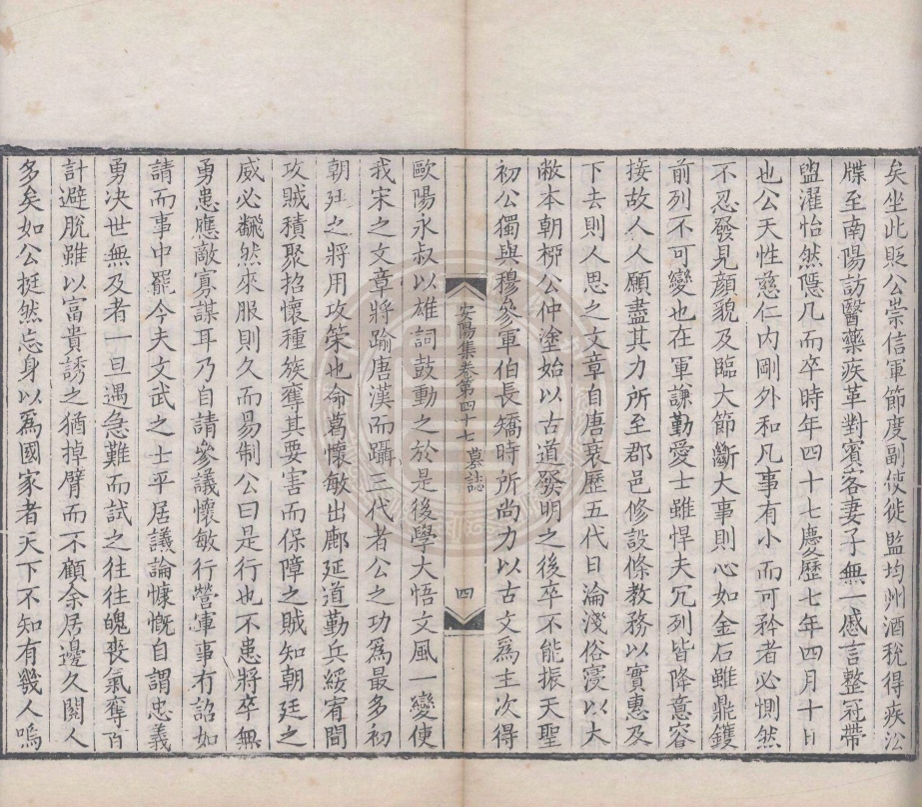 矣坐此貶公崇信軍節度副使徙監均州酒稅得疾沿
牒至南陽訪醫藥疾革對賓客妻子無一慼言整冠帶
盥濯怡然隱几而卒時年四十七慶歷七年四月十日
也公天性慈仁內剛外和凡事有小而可矜者必惻然
不忍發見顏貌及臨大節斷大事則心如金石雖鼎鑊
前列不可變也在軍謙勤愛士雖悍夫冗列皆降意容
接故人人願盡其力所至郡邑修設條教務以實惠及
下去則人思之文章自唐衰歷五代日淪淺俗寖以大
敝本朝栁公仲塗始以古道發明之後卒不能振天聖
初公獨與穆參軍伯長矯時所尚力以古文爲主次得
安陽集卷第四十七 墓誌 四
歐陽永叔以雄詞鼓動之於是後學大悟文風一變使
我宋之文章將踰唐漢而躡三代者公之功爲最多初
朝廷之將用攻策也命葛懷敏出鄜延道勤兵綏宥間
攻賊積聚招懷種族奪其要害而保障之賊知朝廷之
威必飜然來服則久而易制公曰是行也不患將卒無
勇患應敵寡謀耳乃自請參議懷敏行營軍事有詔如
請而事中罷今夫文武之士平居議論慷慨自謂忠義
勇决世無及者一旦遇急難而試之往往魄喪氣奪百
計避脫雖以富貴誘之猶掉臂而不顧余居邊久閱人
多矣如公挺然忘身以爲國家者天下不知有幾人嗚